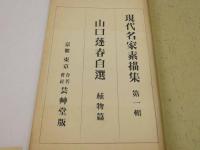 現代名家素描集 第一輯
山口蓬春自選 植物篇
京都 東京 合名會社 芸艸堂版